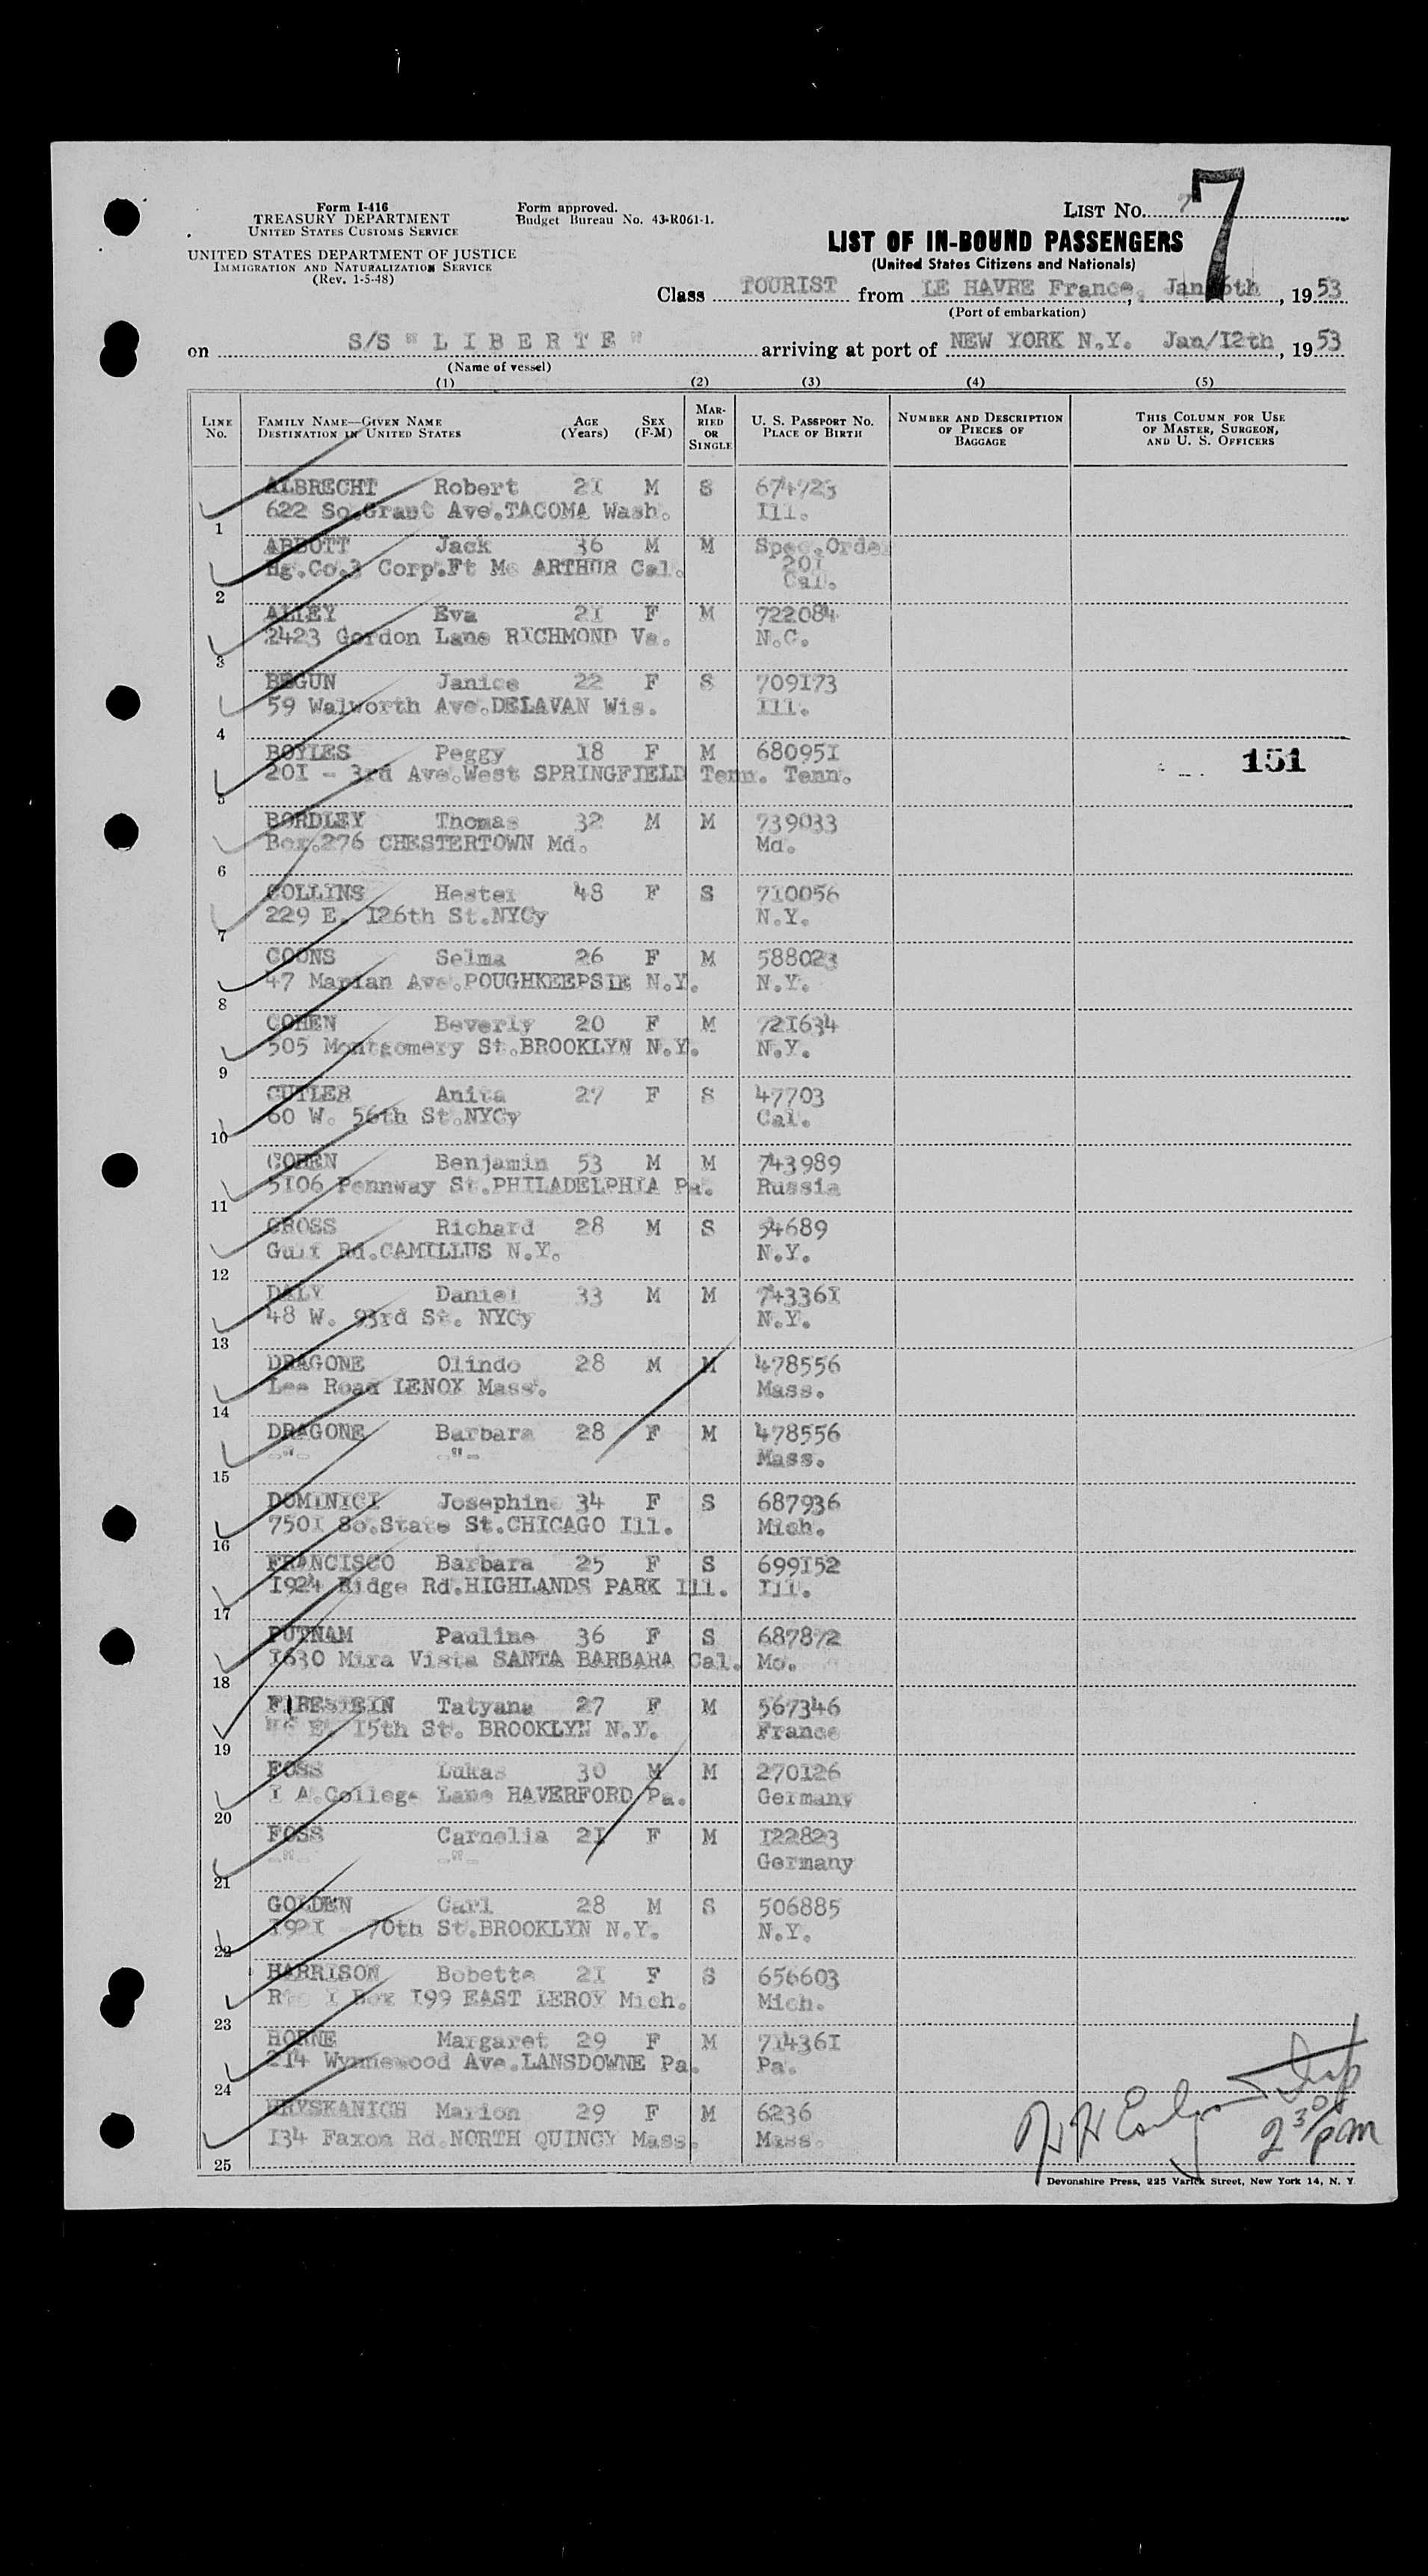 Form I-416
TREASURY DEPARTMENT
UNITED STATES CUSTOMS SERVICE
UNITED STATES DEPARTMENT OF JUSTICE
IMMIGRATION AND NATURALIZATION SERVICE
(Rev. 1-5-48)
Form approved.
Budget Bureau No. 43-R061-1.
LIST No. 7
7
LIST OF IN-BOUND PASSENGERS
(United States Citizens and Nationals)
Class TOURIST from LE HAVRE France, Jan 6th, 1953
(Port of embarkation)
on S/S "LIBERTE" arriving at port of NEW YORK N.Y. Jan/I2th, 1953
(Name of vessel)
(1) (2) (3) (4) (5)
LINE No. FAMILY NAME—GIVEN NAME DESTINATION IN UNITED STATES AGE (Years) SEX (F-M) MARRIED OR SINGLE U. S. PASSPORT No. PLACE OF BIRTH NUMBER AND DESCRIPTION OF PIECES OF BAGGAGE THIS COLUMN FOR USE OF MASTER, SURGEON, AND U. S. OFFICERS
ALBRECHT Robert 2I M S 674723
622 So.Grant Ave.TACOMA Wash. Ill.
1
ABBOTT Jack 36 M M Spec.Orde
Hg.Co.3 Corp.Ft Mc ARTHUR Cal. 20I
Cal.
2
ALLEY Eva 2I F M 722084
2423 Gordon Lane RICHMOND Va. N.C.
3
BEGUN Janice 22 F S 709I73
59 Walworth Ave.DELAVAN Wis. Ill.
4
BOYLES Peggy I8 F M 68095I
20I - 3rd Ave.West SPRINGFIELD Tenn. Tenn.
151
5
BORDLEY Thomas 32 M M 739033
Box.276 CHESTERTOWN Md. Md.
6
COLLINS Hester 48 F S 7I0056
229 E. I26th St.NYCy N.Y.
7
COONS Selma 26 F M 588023
47 Marian Ave.POUGHKEEPSIE N.Y. N.Y.
8
COHEN Beverly 20 F M 72I634
505 Montgomery St.BROOKLYN N.Y. N.Y.
9
CUTLER Anita 27 F S 47703
60 W. 56th St.NYCy Cal.
10
COHEN Benjamin 53 M M 743989
5I06 Pennway St.PHILADELPHIA Pa. Russia
11
CROSS Richard 28 M S 54689
Gulf Rd.CAMILLUS N.Y. N.Y.
12
DALY Daniel 33 M M 74336I
48 W. 93rd St. NYCy N.Y.
13
DRAGONE Olindo 28 M M 478556
Lee Road LENOX Mass. Mass.
14
DRAGONE Barbara 28 F M 478556
-"- -"- Mass.
15
DOMINICI Josephine 34 F S 687936
750I So.State St.CHICAGO Ill. Mich.
16
FRANCISCO Barbara 25 F S 699I52
I924 Ridge Rd.HIGHLANDS PARK Ill. Ill.
17
PUTNAM Pauline 36 F S 687872
I630 Mira Vista SANTA BARBARA Cal. Mo.
18
Tatyana 27 F M 567346
E. I5th St. BROOKLYN N.Y. France
19
FOSS Lukas 30 M M 270I26
I A.College Lane HAVERFORD Pa. Germany
20
FOSS Carnelia 2I F M I22823
-"- -"- Germany
21
GOLDEN Carl 28 M S 506885
I92I 70th St.BROOKLYN N.Y. N.Y.
22
HARRISON Bobette 2I F S 656603
Rte I Box I99 EAST LEROY Mich. Mich.
23
HORNE Margaret 29 F M 7I436I
2I4 Wynnewood Ave.LANSDOWNE Pa. Pa.
24
HRYSKANICH Marion 29 F M 6236
I34 Faxon Rd.NORTH QUINCY Mass. Mass.
25
2 30/pm
Devonshire Press, 225 Varick Street, New York 14, N. Y.